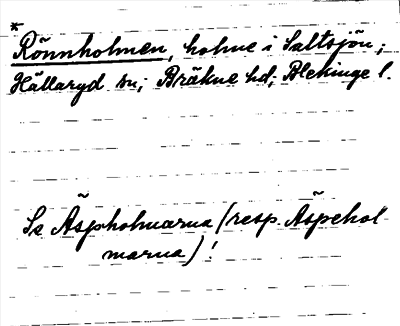 *
Rönnholmen, holme i Saltsjön;
Hällaryd sn; Bräkne hd; Blekinge l.
Se Äspholmarna (resp. Äspehol
marna)!